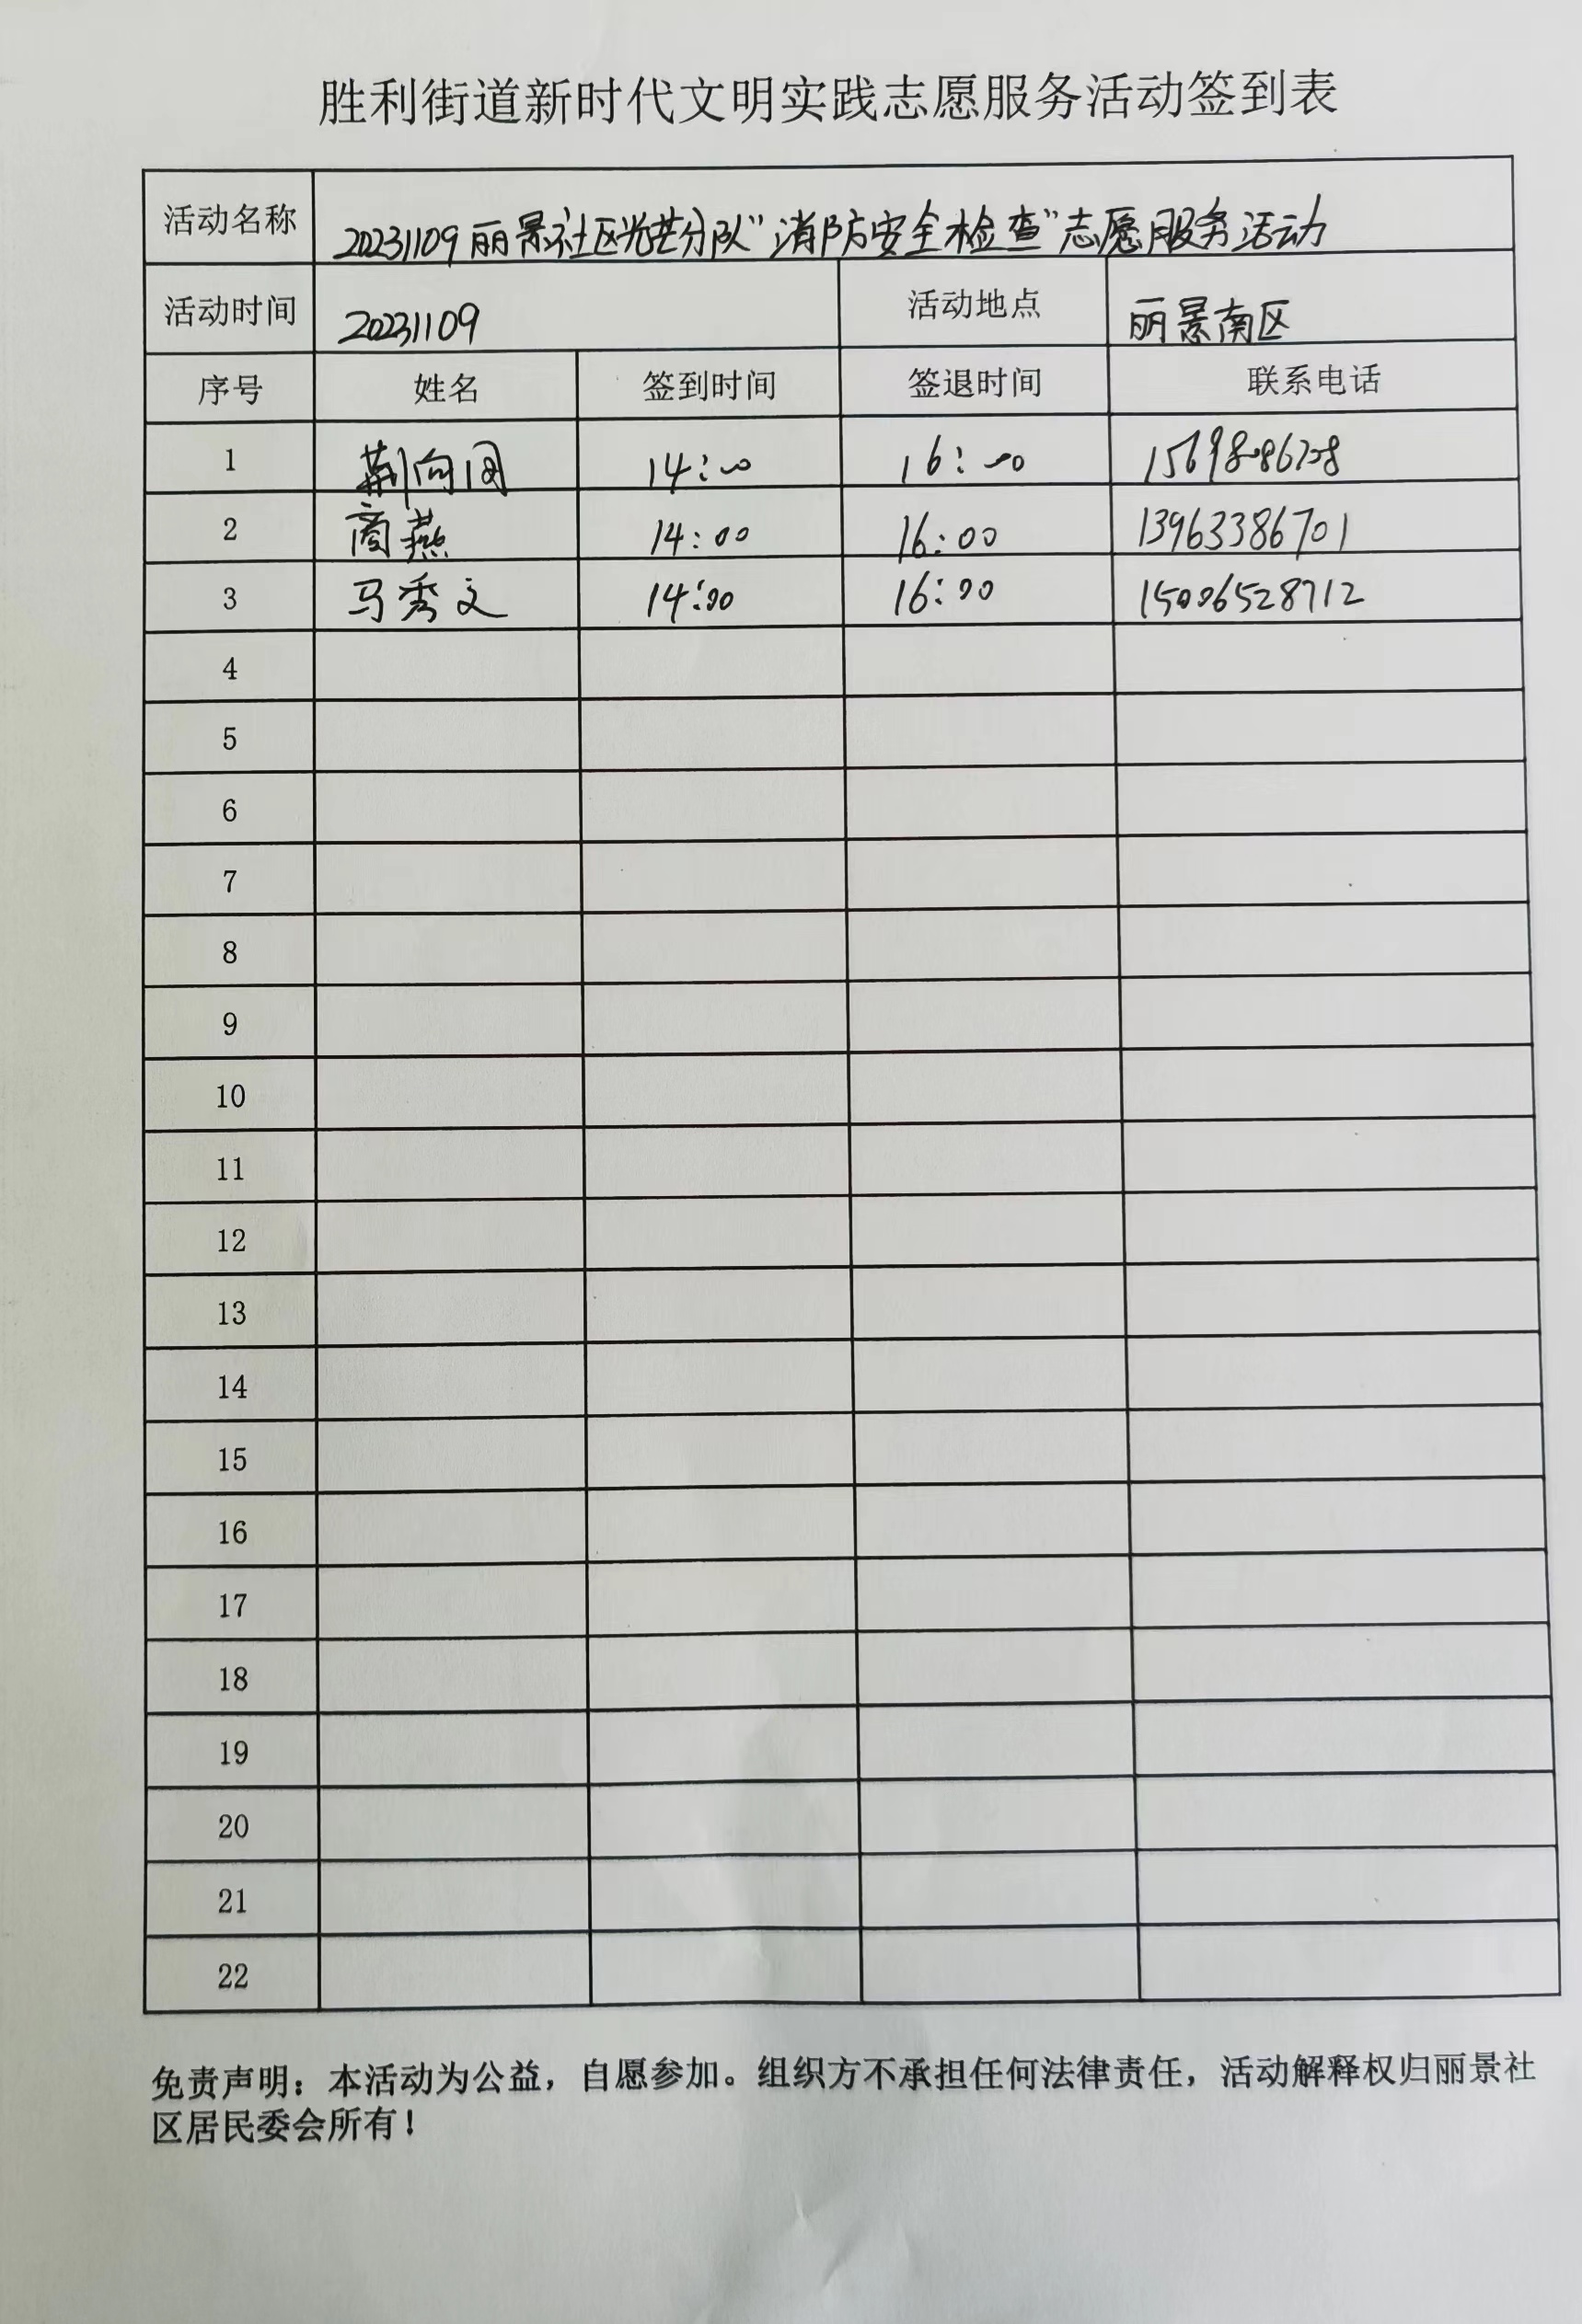 胜利街道新时代文明实践志愿服务活动签到表
活动名称 20231109丽景社区光芒分队"消防安全检查"志愿服务活动
活动时间 20231109 活动地点 丽景南区
序号 姓名 签到时间 签退时间 联系电话
1 荆向 14:00 16:00
2 商燕 14:00 16:00 13963386701
3 马秀文 14:00 16:00 15006528712
4
5
6
7
8
9
10
11
12
13
14
15
16
17
18
19
20
21
22
免责声明：本活动为公益，自愿参加。组织方不承担任何法律责任，活动解释权归丽景社
区居民委会所有！